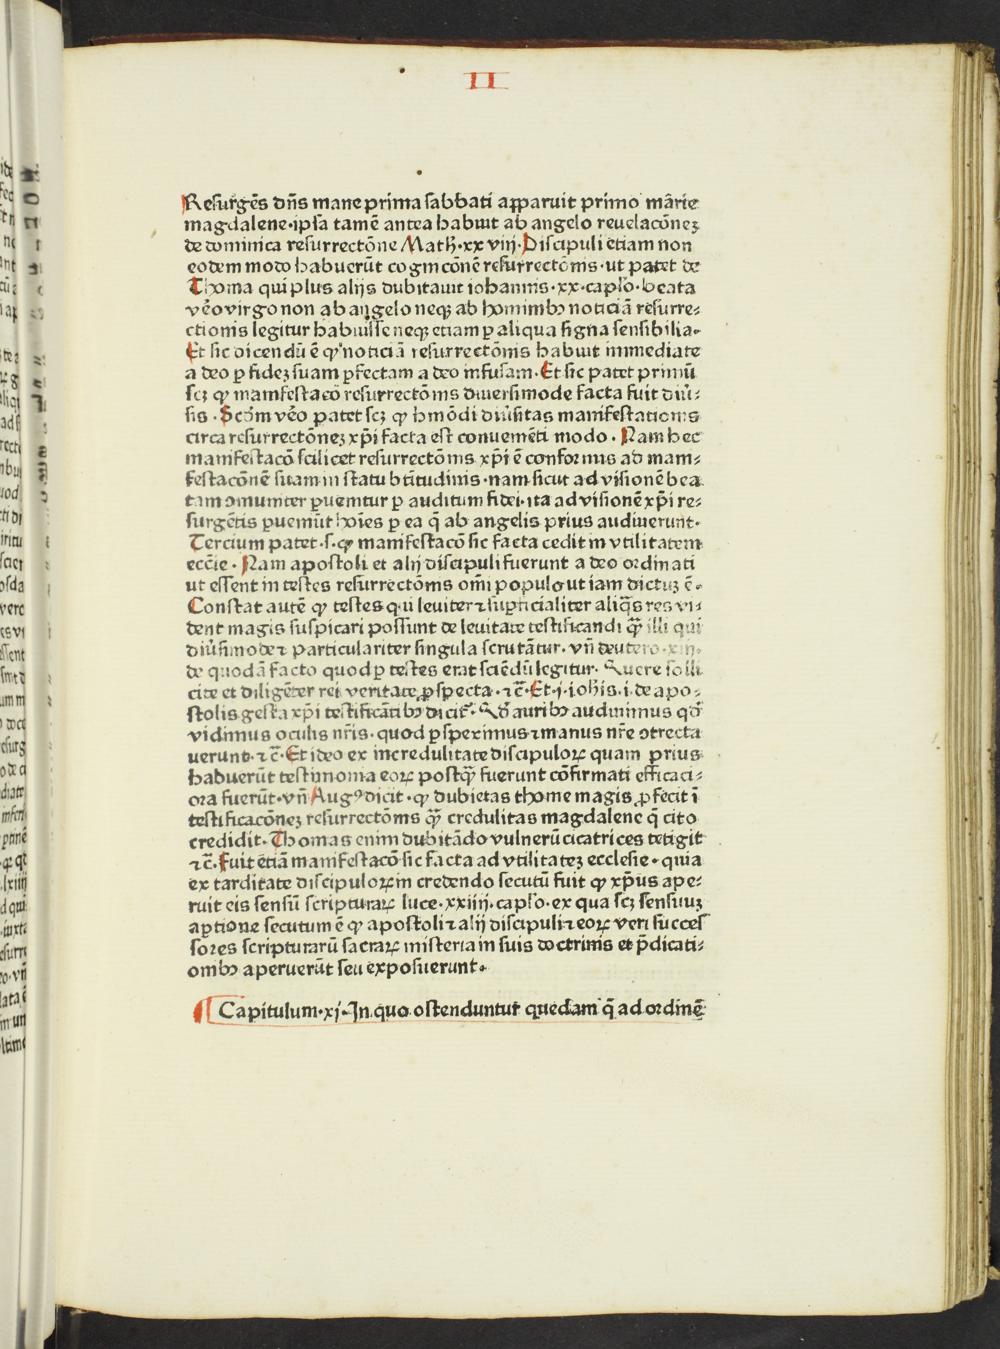 II
Resurgēs dn̄s mane prima sabbati apparuit primo mārie
magdalene·ipsa tamē antea habuit ab angelo reuelacōneꝫ
de dominica resurrectōne Math·xxviij·Discipuli etiam non
eodem modo habuerūt cognicōnē resurrectōnis·ut patet de
Thoma qui plus alijs dubitauit iohannis·xx·caplo·beata
vēo virgo non ab angelo neqꝫ ab hominibꝫ noticiā resurre⸗
ctionis legitur habuisse neqꝫ etiam ꝑ aliqua signa sensibilia·
Et sic dicendū ē qꝫ noticiā resurrectōnis habuit immediate
a deo ꝑ fideꝫ suam ꝑfectam a deo infusam·Et sic patet primū
scꝫ qꝫ manifestacō resurrectōnis diuersimode facta fuit diū⸗
sis·Scōm vēo patet scꝫ qꝫ hmōdi diūsitas manifestationis
circa resurrectōneꝫ xp̄i facta est conuenēti modo·Nam hec
manifestacō scilicet resurrectōnis xp̄i ē conformis ad mani⸗
festacōnē suam in statu btitudinis·nam sicut ad visionē bea
tam ꝯmuniter ꝑuenitur ꝑ auditum fidei·ita ad visionē xp̄i re⸗
surgētis ꝑueniūt hoīes ꝑ ea q̄ ab angelis prius audiuerunt·
Tercium patet·s·qꝫ manifestacō sic facta cedit in vtilitatem
eccīe·Nam apostoli et alij discipuli fuerunt a deo ordinati
ut essent in testes resurrectōnis omi populo ut iam dictuꝫ ē·
Constat autē qꝫ testes qui leuiter ⁊ suꝑficialiter aliq̄s res vi⸗
dent magis suspicari possunt de leuitate testificandi qꝫ̄ illi qui
diūsimode ⁊ particulariter singula scrutātur·vn̄ deutero·xiij·
de quodā facto quod ꝑ testes erat sciēdū legitur·Quere solli
cite et diligēter rei veritate ꝓspecta·⁊c̄·Et·j·iohis·i·de apo⸗
stolis gesta xp̄i testificātibꝫ dicit᷑·Qd̄ auribꝫ audiuimus qd̄
vidimus oculis nr̄is·quod ꝑspeximus ⁊ manus nr̄e ꝯtrecta
uerunt·⁊c̄·Et ideo ex incredulitate discipuloꝝ quam prius
habuerūt testimonia eoꝝ postqꝫ̄ fuerunt cōfirmati efficaci⸗
ora fuerūt·vn̄ Augꝰ dicit·qꝫ dubietas thome magis ꝓfecit ī
testificacōneꝫ resurrectōnis qꝫ̄ credulitas magdalene q̄ cito
credidit·Thomas enim dubitādo vulnerū cicatrices tetigit
⁊c̄·Fuit etiā manifestacō sic facta ad vtilitateꝫ ecclesie·quia
ex tarditate discipuloꝝ in credendo secutū fuit qꝫ xp̄us ape⸗
ruit eis sensū scripturaꝝ luce·xxiiij·caplo·ex qua scꝫ sensuuꝫ
aptione secutum ē qꝫ apostoli ⁊ alij discipuli ⁊ eoꝝ veri succes
sores scripturarū sacraꝝ misteria in suis doctrinis et p̄dicati⸗
onibꝫ aperuerūt seu exposuerunt·
Capitulum·xj·In quo ostenduntur quedam q̄ ad ordinē